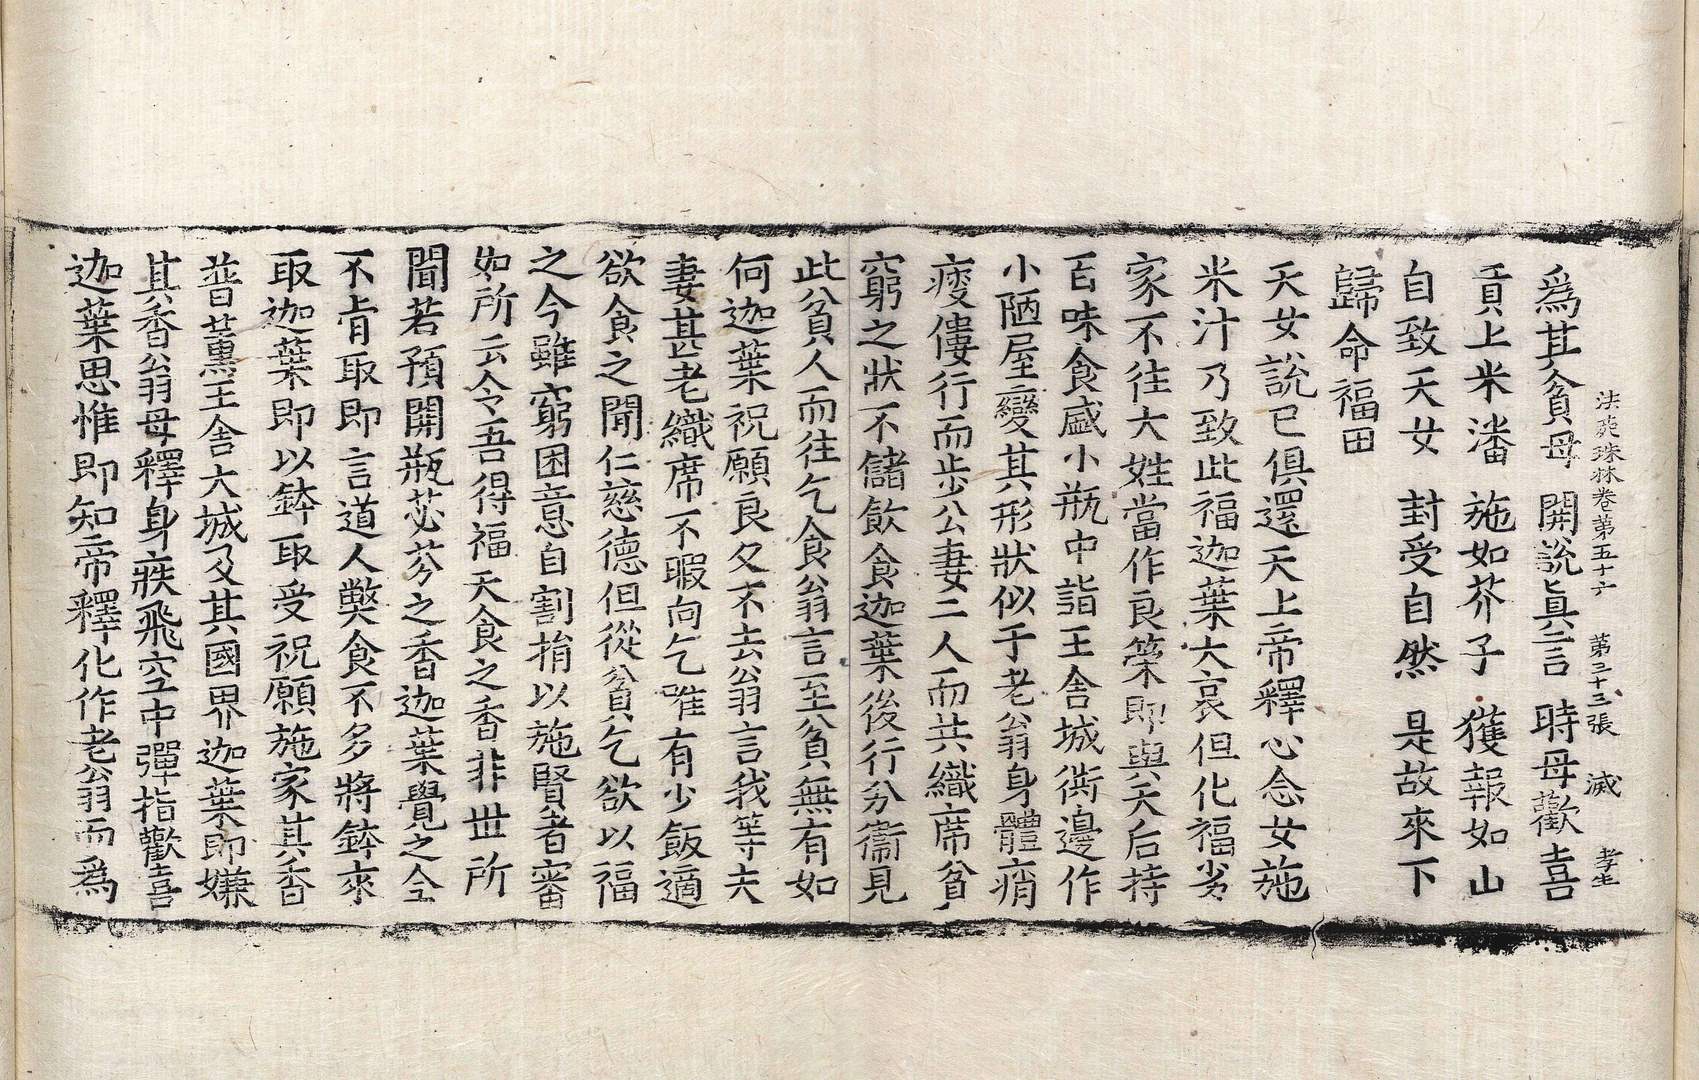 法苑珠林卷第五十六 第三十三張 滅 孝生
爲其貧母 開說眞言 時母歡喜
貢上米潘 施如芥子 獲報如山
自致天女 封受自然 是故來下
歸命福田
天女說已俱還天上帝釋心念女施
米汁乃致此福迦葉大哀但化福劣
家不往大姓當作良筞即與天后持
百味食盛小瓶中詣王舍城街邊作
小陋屋變其形狀似于老翁身體痟
瘦僂行而步公妻二人而共織席貧
窮之狀不儲飮食迦葉後行分衞見
此貧人而往乞食翁言至貧無有如
何迦葉祝願良久不去翁言我等夫
妻甚老織席不暇向乞唯有少飯適
欲食之聞仁慈德但從貧乞欲以福
之今雖窮困意自割捐以施賢者審
如所云令吾得福天食之香非世所
聞若預開瓶苾芬之香迦葉覺之全
不肯取即言道人獘食不多將鉢來
取迦葉即以鉢取受祝願施家其香
普薰王舍大城及其國界迦葉即嫌
其香翁母釋身疾飛空中彈指歡喜
迦葉思惟即知帝釋化作老翁而爲